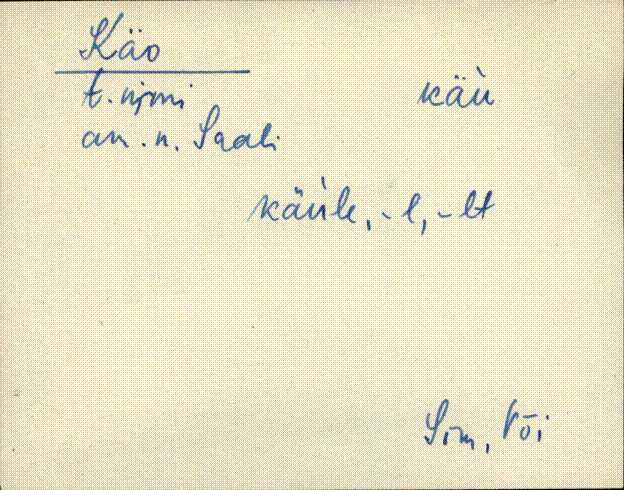 Käo
t. nimi käù
an. n. Saali
käùle, -l, -lt
Sim, Või